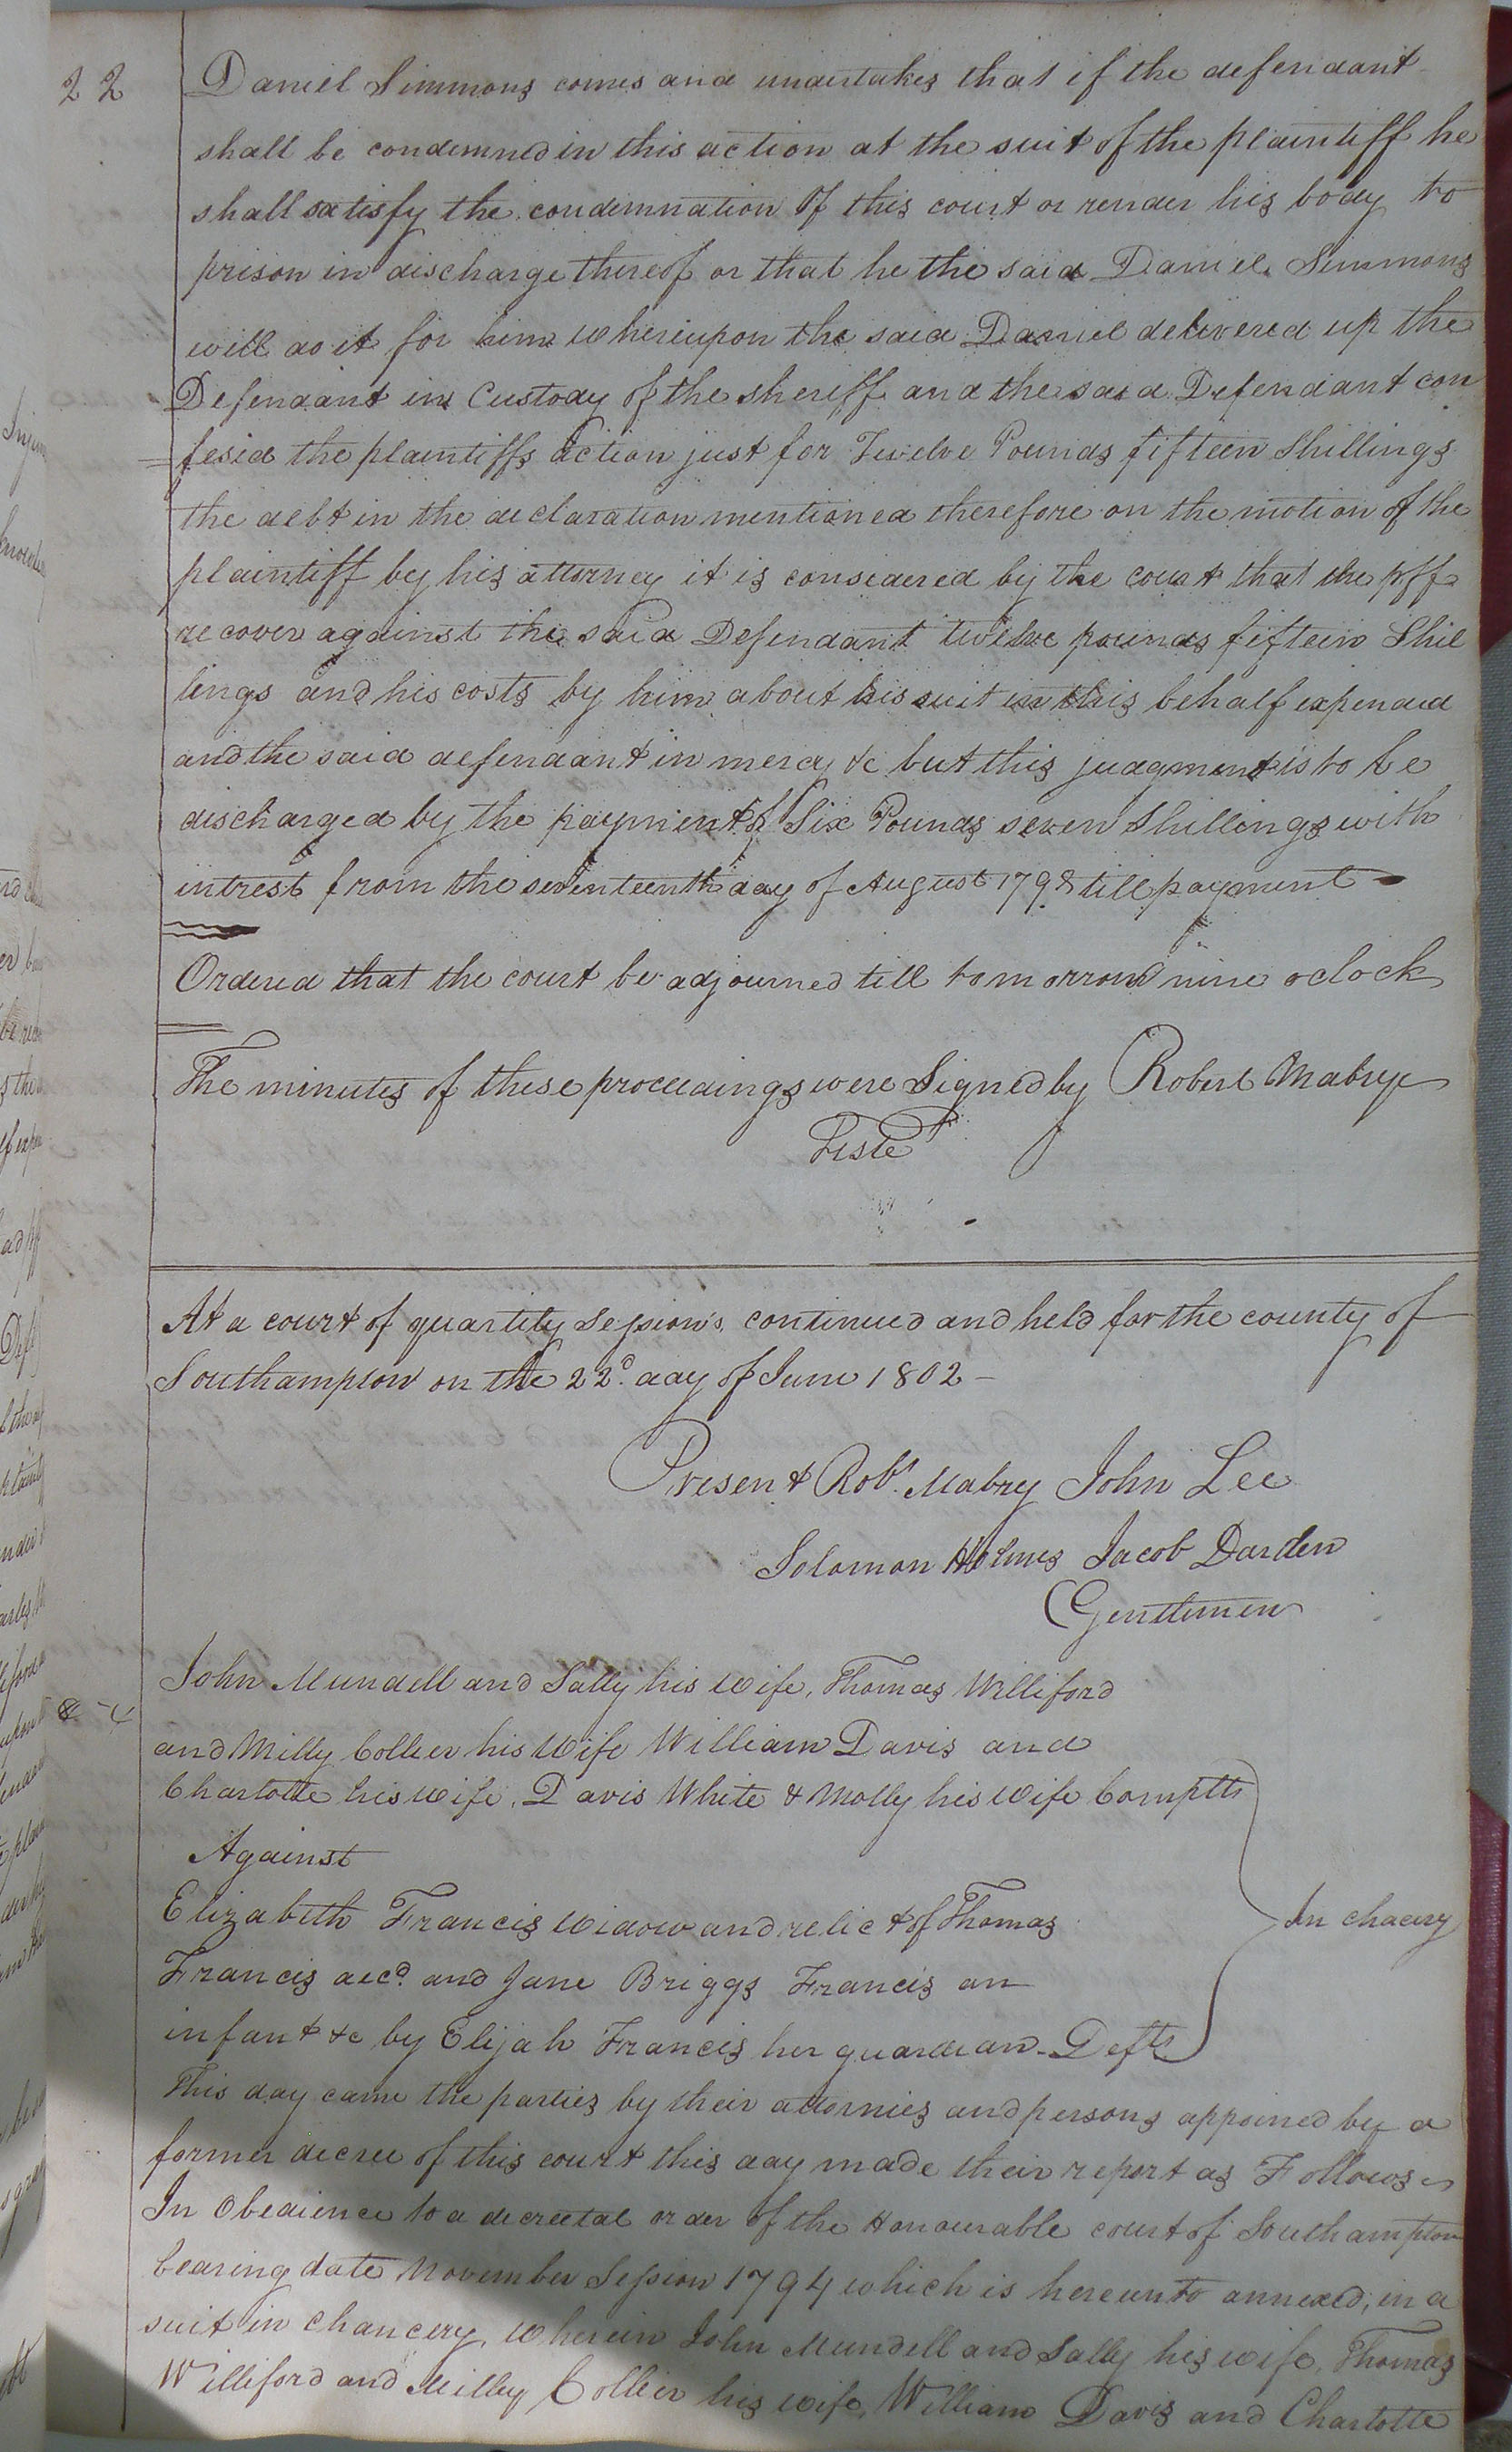 22
Daniel Simmons comes and undertakes that if the defendant
shall be condemned in this action at the suit of the plaintiff he
shall satisfy the condemnation of this court or render his body to
prison in discharge thereof or that he the said Daniel Simmons
will do it for him whereupon the said Daniel delivered up the
Defendant in Custody of the sheriff and the said Defendant con
=fesid the plaintiffs action just for Twelve Pounds fifteen Shillings
the debt in the declaration mentioned therefore on the motion of the
plaintiff by his attorney it is considered by the court that the pff
recover against the said Defendant twelve pounds fifteen Shil
lings and his costs by him about his suit in this behalf expended
and the said defendant in mercy &c but this judgment is to be
discharged by the payment of Six Pounds seven Shillings with
intrest from the seventeenth day of August 1798 till payment
Ordered that the court be adjourned till tomorrow nine oclock
The minutes of these proceedings were Signed by Robert Mabry
Teste
At a court of quartily Sessions, continued and held for the county of
Southampton on the 22d. day of June 1802 -
Present Robt. Mabry John Lee
Solomon Holmes Jacob Darden
Gentlemen
John Mundell and Sally his Wife, Thomas Williford
and Milly Collier his Wife William Davis and
Charlotte his wife, Davis White & Molly his Wife Complts
Against
Elizabeth Francis Widow and relict of Thomas
In chacery
Francis decd. and Jane Briggs Francis an
infant &c by Elijah Francis her guardian - Defts
This day came the parties by their attornies and persons appoined by a
former decree of this court this day made their report as Follows
In Obedience to a decreetal order of the Honourable court of Southampton
bearing date November Session 1794 which is hereunto annexed, in a
suit in Chancery, wherein John Mundell and Sally his wife, Thomas
Williford and Milley Collier his wife, William Davis and Charlotte